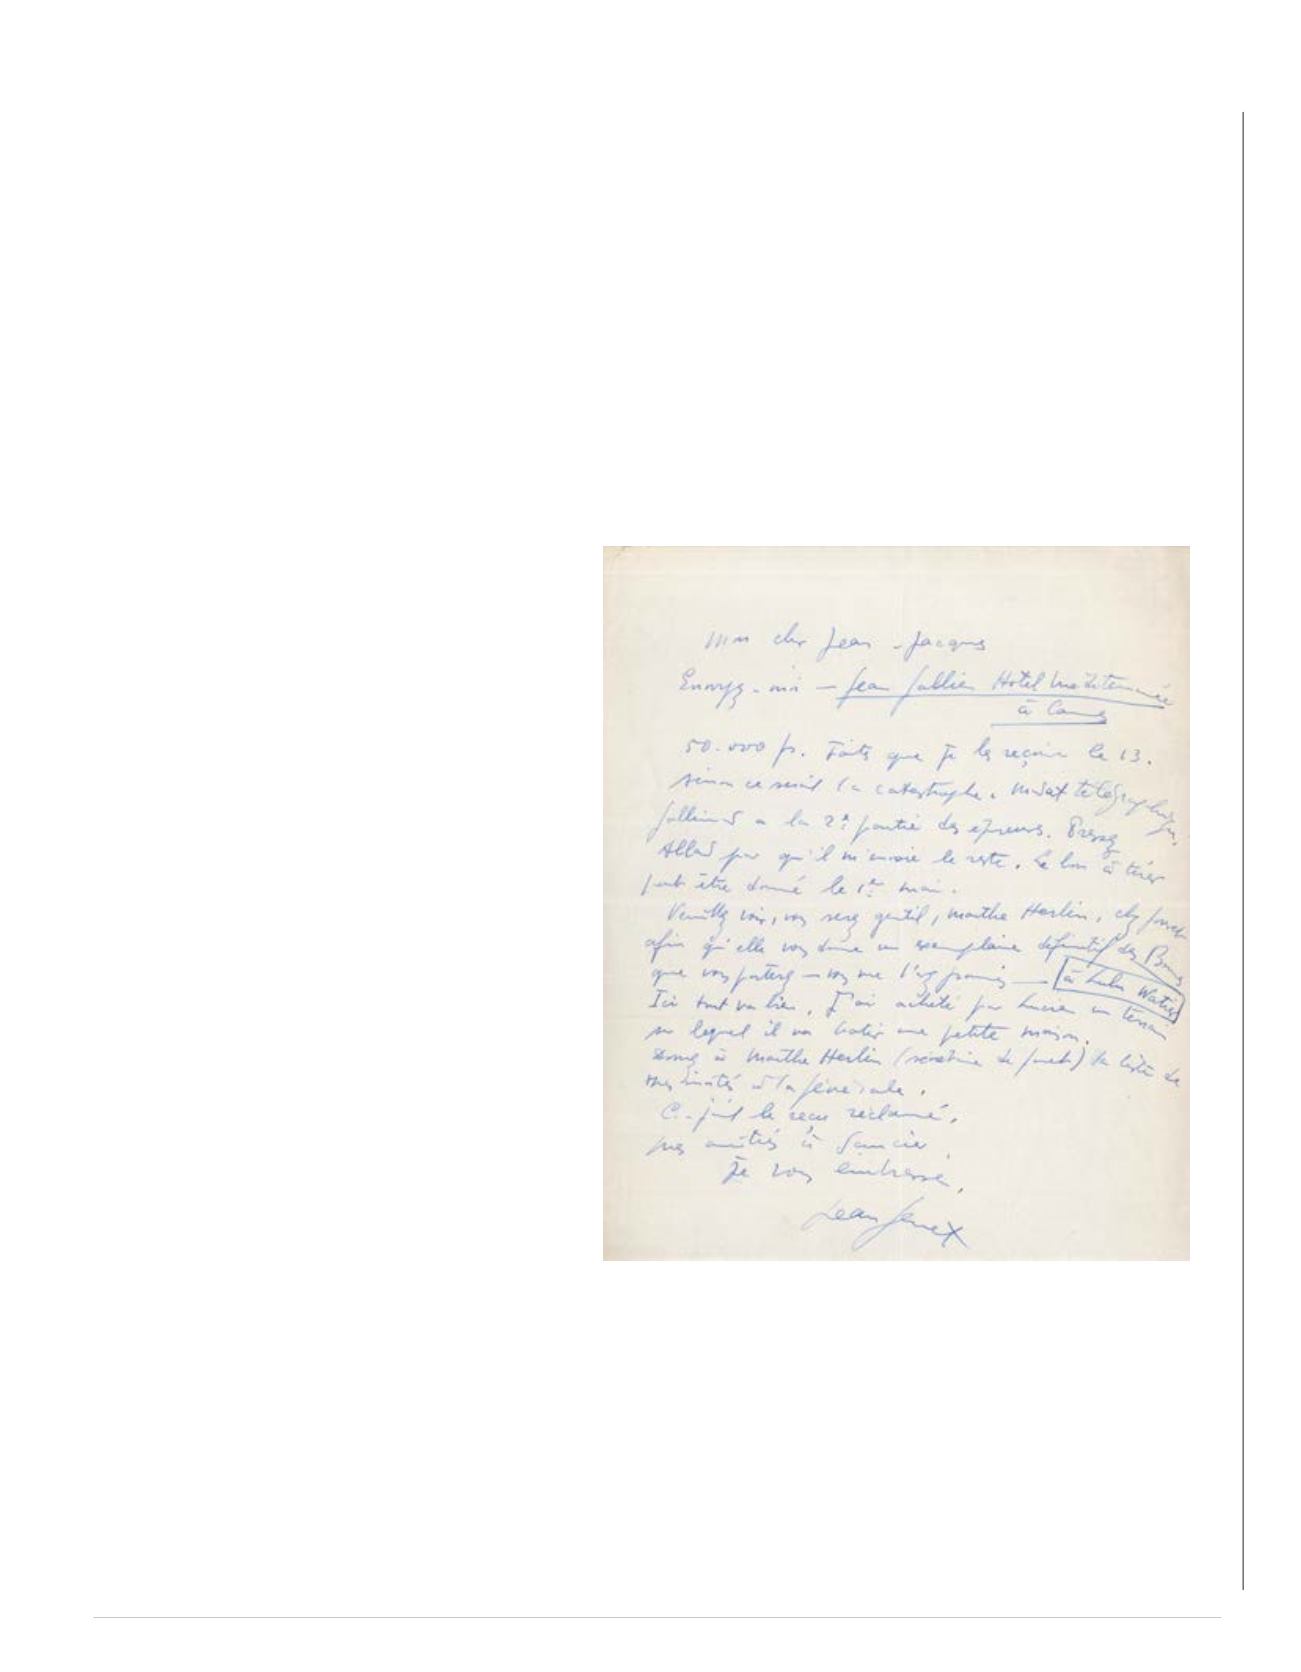 Mon cher Jean-Jacques
Envoyez-moi — Jean Gallien Hotel Méditerranée
à Cannes
50.000 frs. Faites que je les reçoive le 13.
sinon ce serait la catastrophe. Mandat télégraphique.
Gallimard a la 2e partie des épreuves. Pressez
pour qu'il m'envoie le reste. Le bon à tirer
peut être donné le 1er mai.
Veuillez voir, vous serez gentil, Marthe Herlin, chez Jouvet
afin qu'elle vous donne un exemplaire définitif des Bonnes
que vous porterez — vous me l'avez promis — à Lulu Watier
Ici tout va bien. J'ai acheté pour Lucien un terrain
sur lequel il va batir une petite maison.
Donnez à Marthe Herlin (secrétaire de Jouvet) la liste de
mes invités à la générale.
Ci-joint le reçu réclamé.
mes amitiés à
Je vous embrasse.
Jean Genet